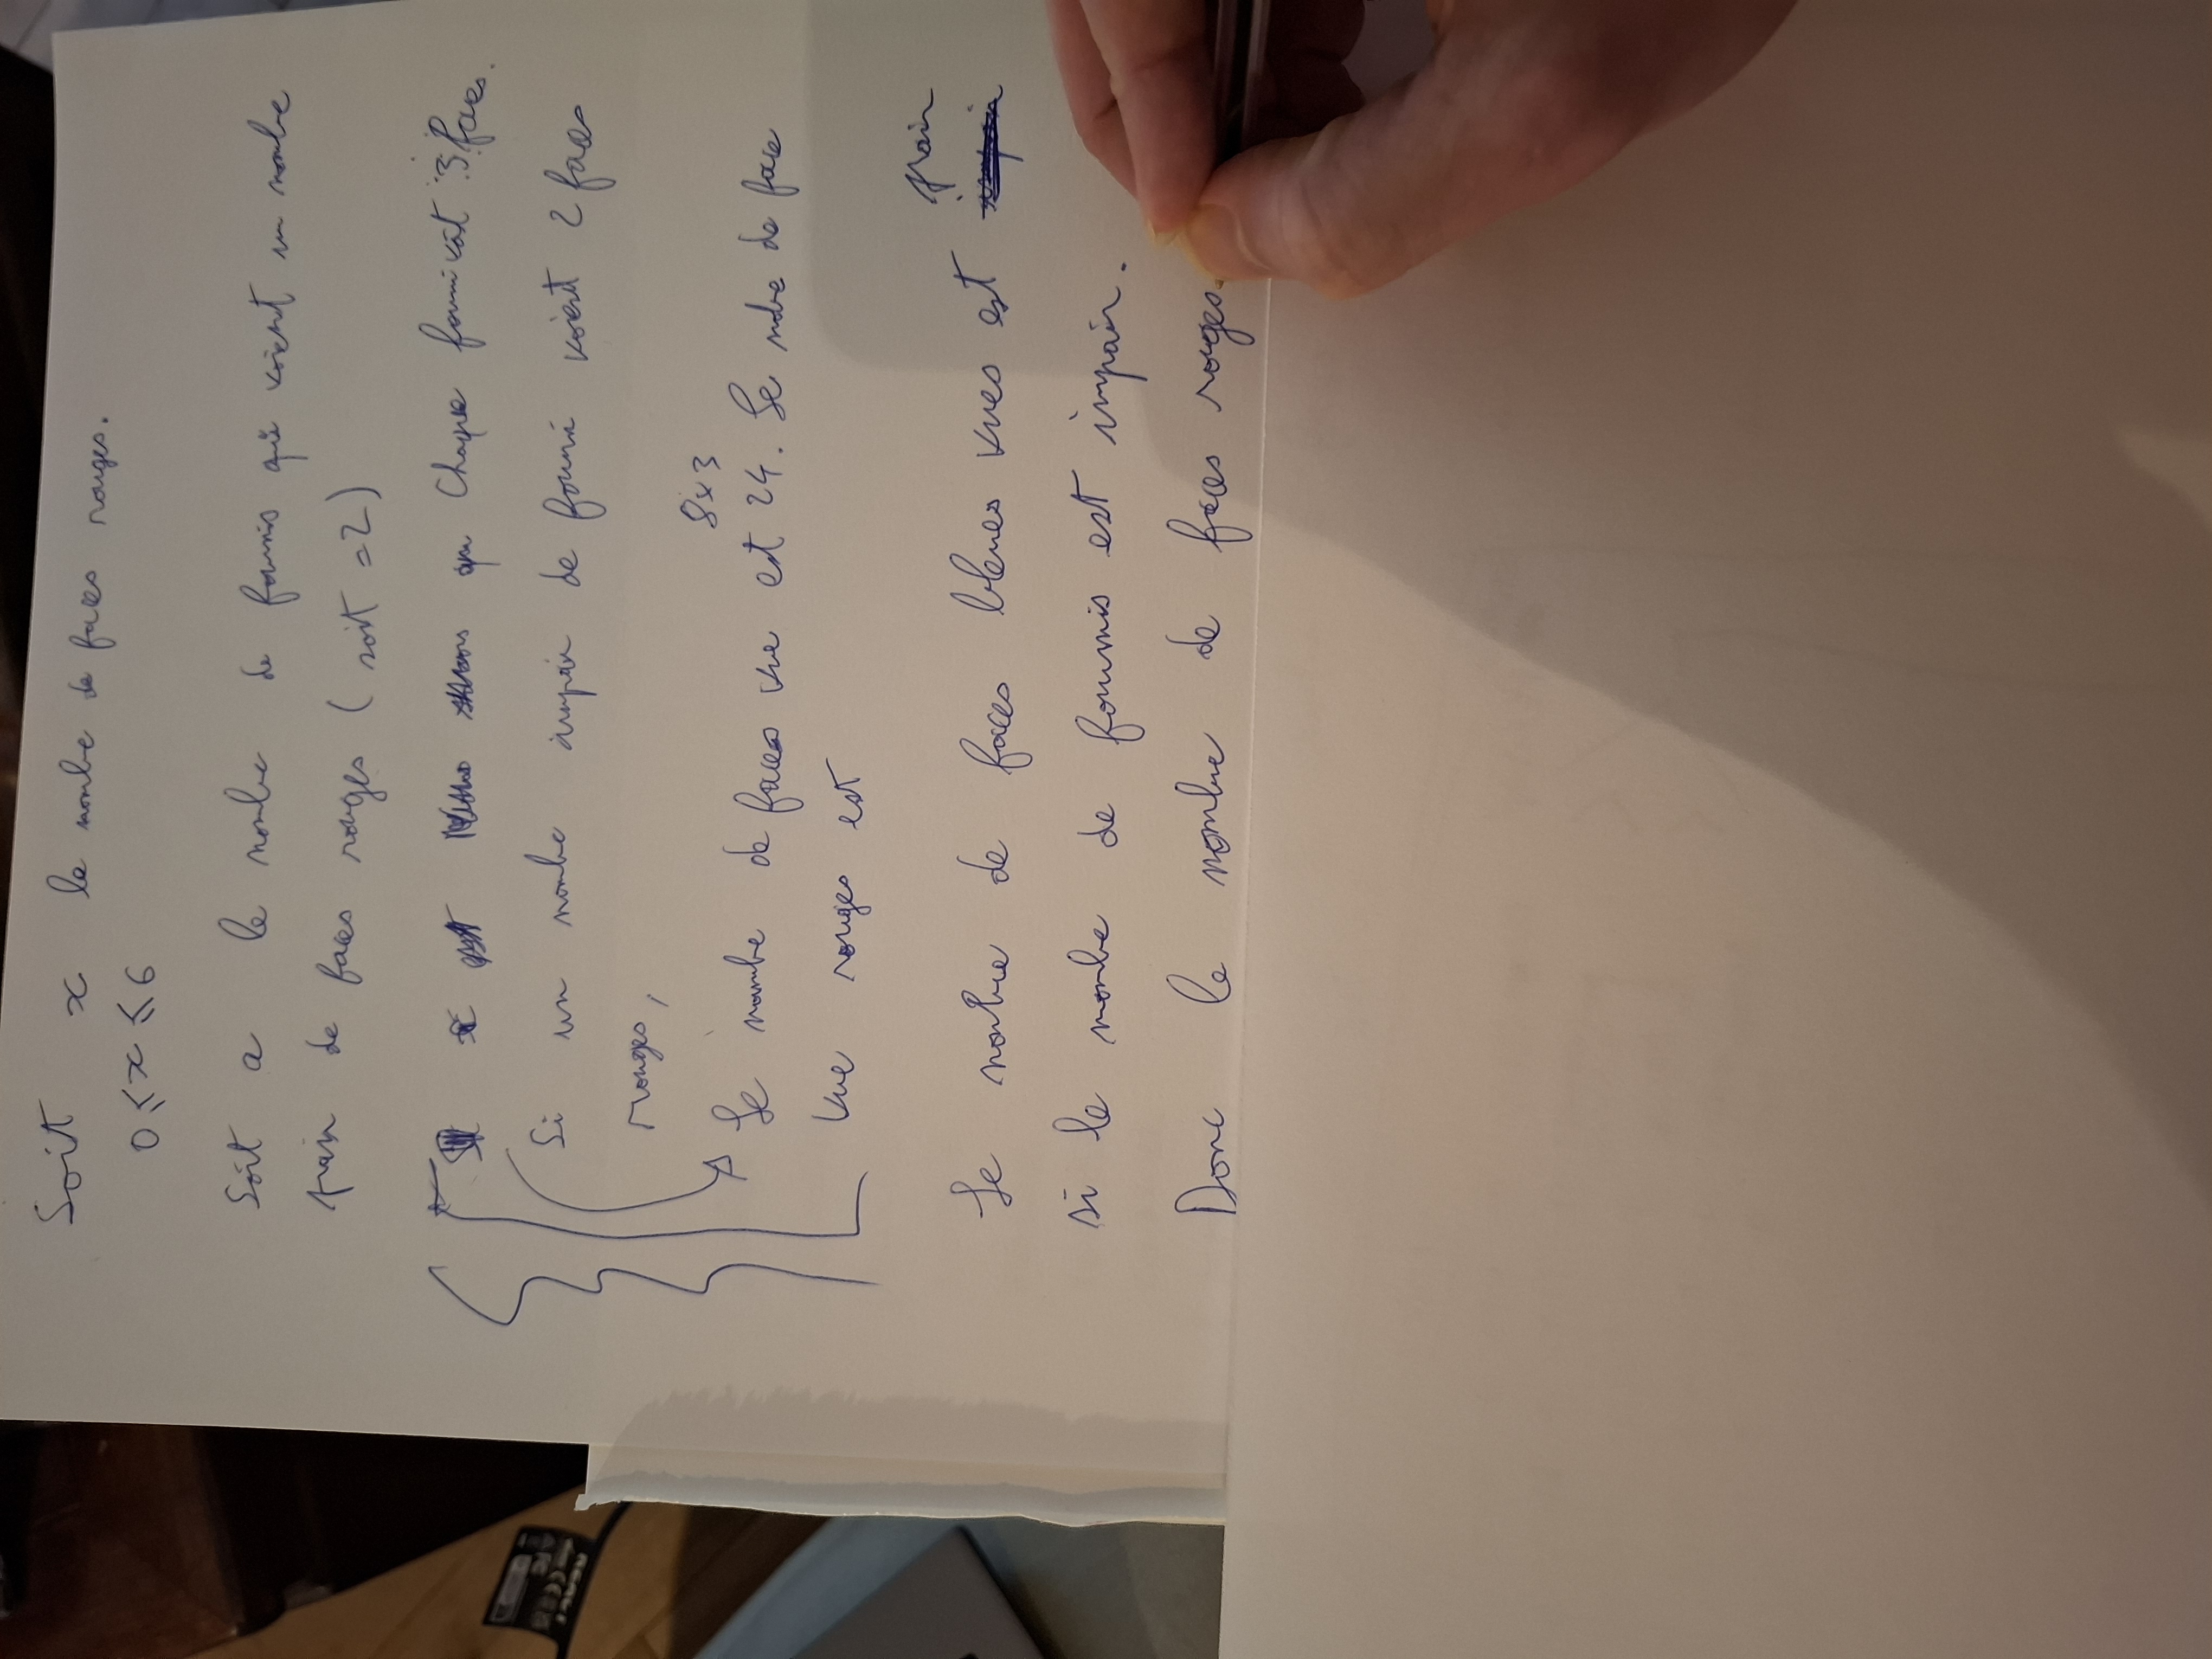 Soit x le nombre de faces rouges.
0 ⩽ x ⩽ 6
Soit a le nombre de fourmis qui voient un nombre
pair de faces rouges (soit = 2)
Chaque fourmi voit 3 faces.
Si un nombre impair de fourmi voient 2 faces
rouges,
8x3
Le nombre de faces vue est 24. Le nobre de face
vue rouges est
pair
Le nombre de faces bleues vues est
si le nombre de fourmis est impair.
Donc le nombre de faces rouges